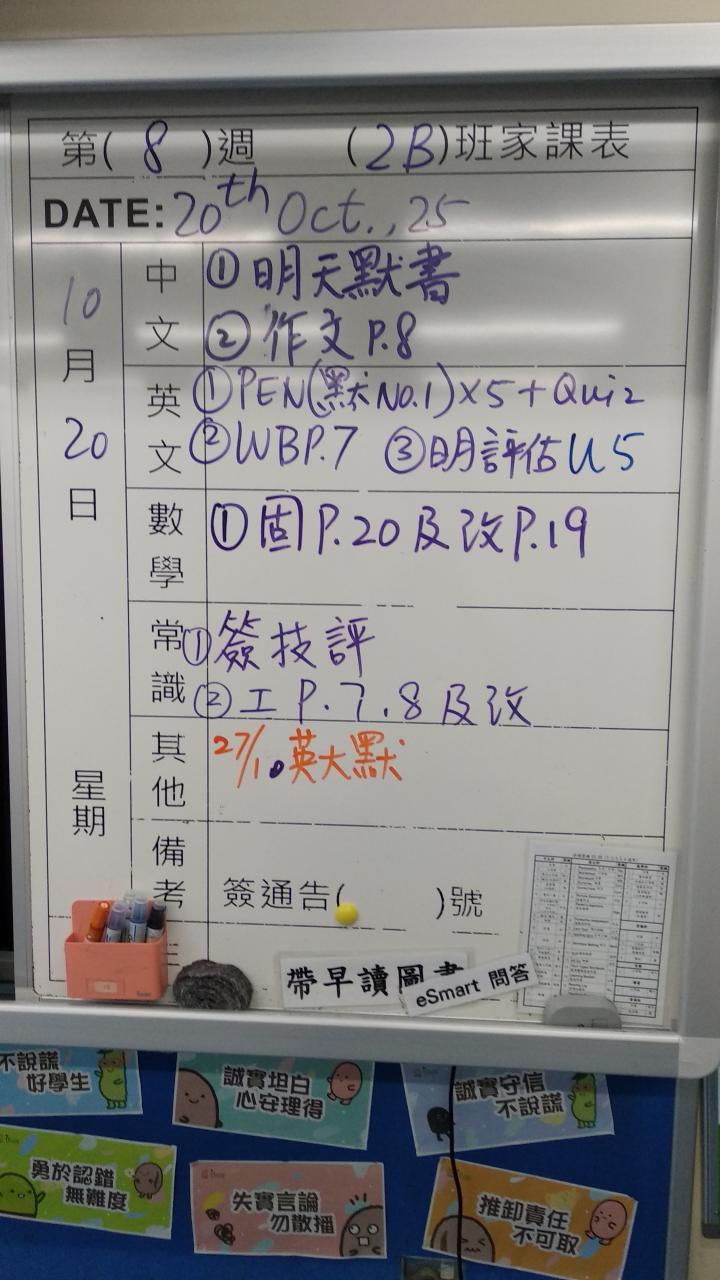 第(8)週 (2B)班家課表
DATE: 20th Oct., 25
10月20日
星期
中文
①明天默書
②作文P.8
英文
①PEN(默No.1)×5+Quiz
②WBP.7 ③明評估U5
數學
①固P.20及改P.19
常識
①簽技評
②工P.7.8及改
其他
27/10英大默
備考
簽通告( )號
帶早讀圖書
eSmart 問答
不說謊
好學生
誠實坦白
心安理得
誠實守信
不說謊
勇於認錯
無難度
失實言論
勿散播
推卸責任
不可取